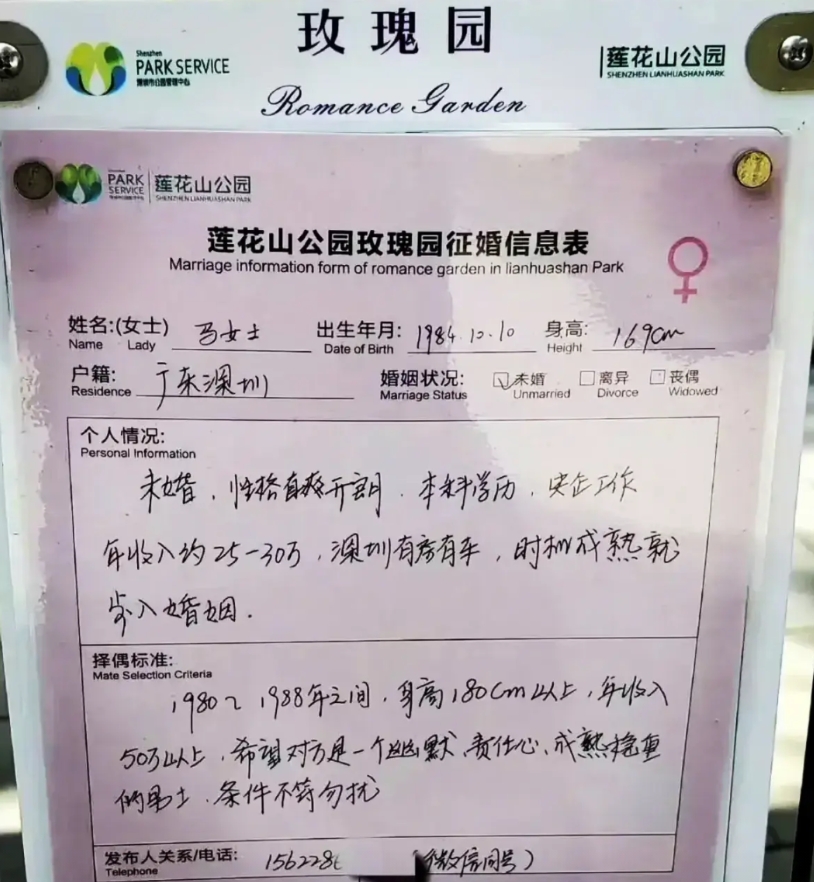 玫瑰园
Shenzhen
PARK SERVICE
深圳市公园管理中心
莲花山公园
SHENZHEN LIANHUASHAN PARK
Romance Garden
PARK
SERVICE
莲花山公园
SHENZHEN LIANHUASHAN PARK
莲花山公园玫瑰园征婚信息表
Marriage information form of romance garden in lianhuashan Park
姓名:(女士) 马女士 出生年月: 1984.12.10 身高: 169cm
Name Lady Date of Birth Height
户籍: 广东深圳 婚姻状况: 未婚 离异 丧偶
Residence Marriage Status Unmarried Divorce Widowed
个人情况:
Personal Information
未婚,性格直爽开朗.本科学历,央企工作
年收入约25-30万,深圳有房有车,时机成熟就
步入婚姻.
择偶标准:
Mate Selection Criteria
1980~1988年之间,身高180cm以上,年收入
50万以上,希望对方是一个幽默、责任心、成熟稳重
的男士.条件不符勿扰
发布人关系/电话: 156228 (微信同号)
Telephone